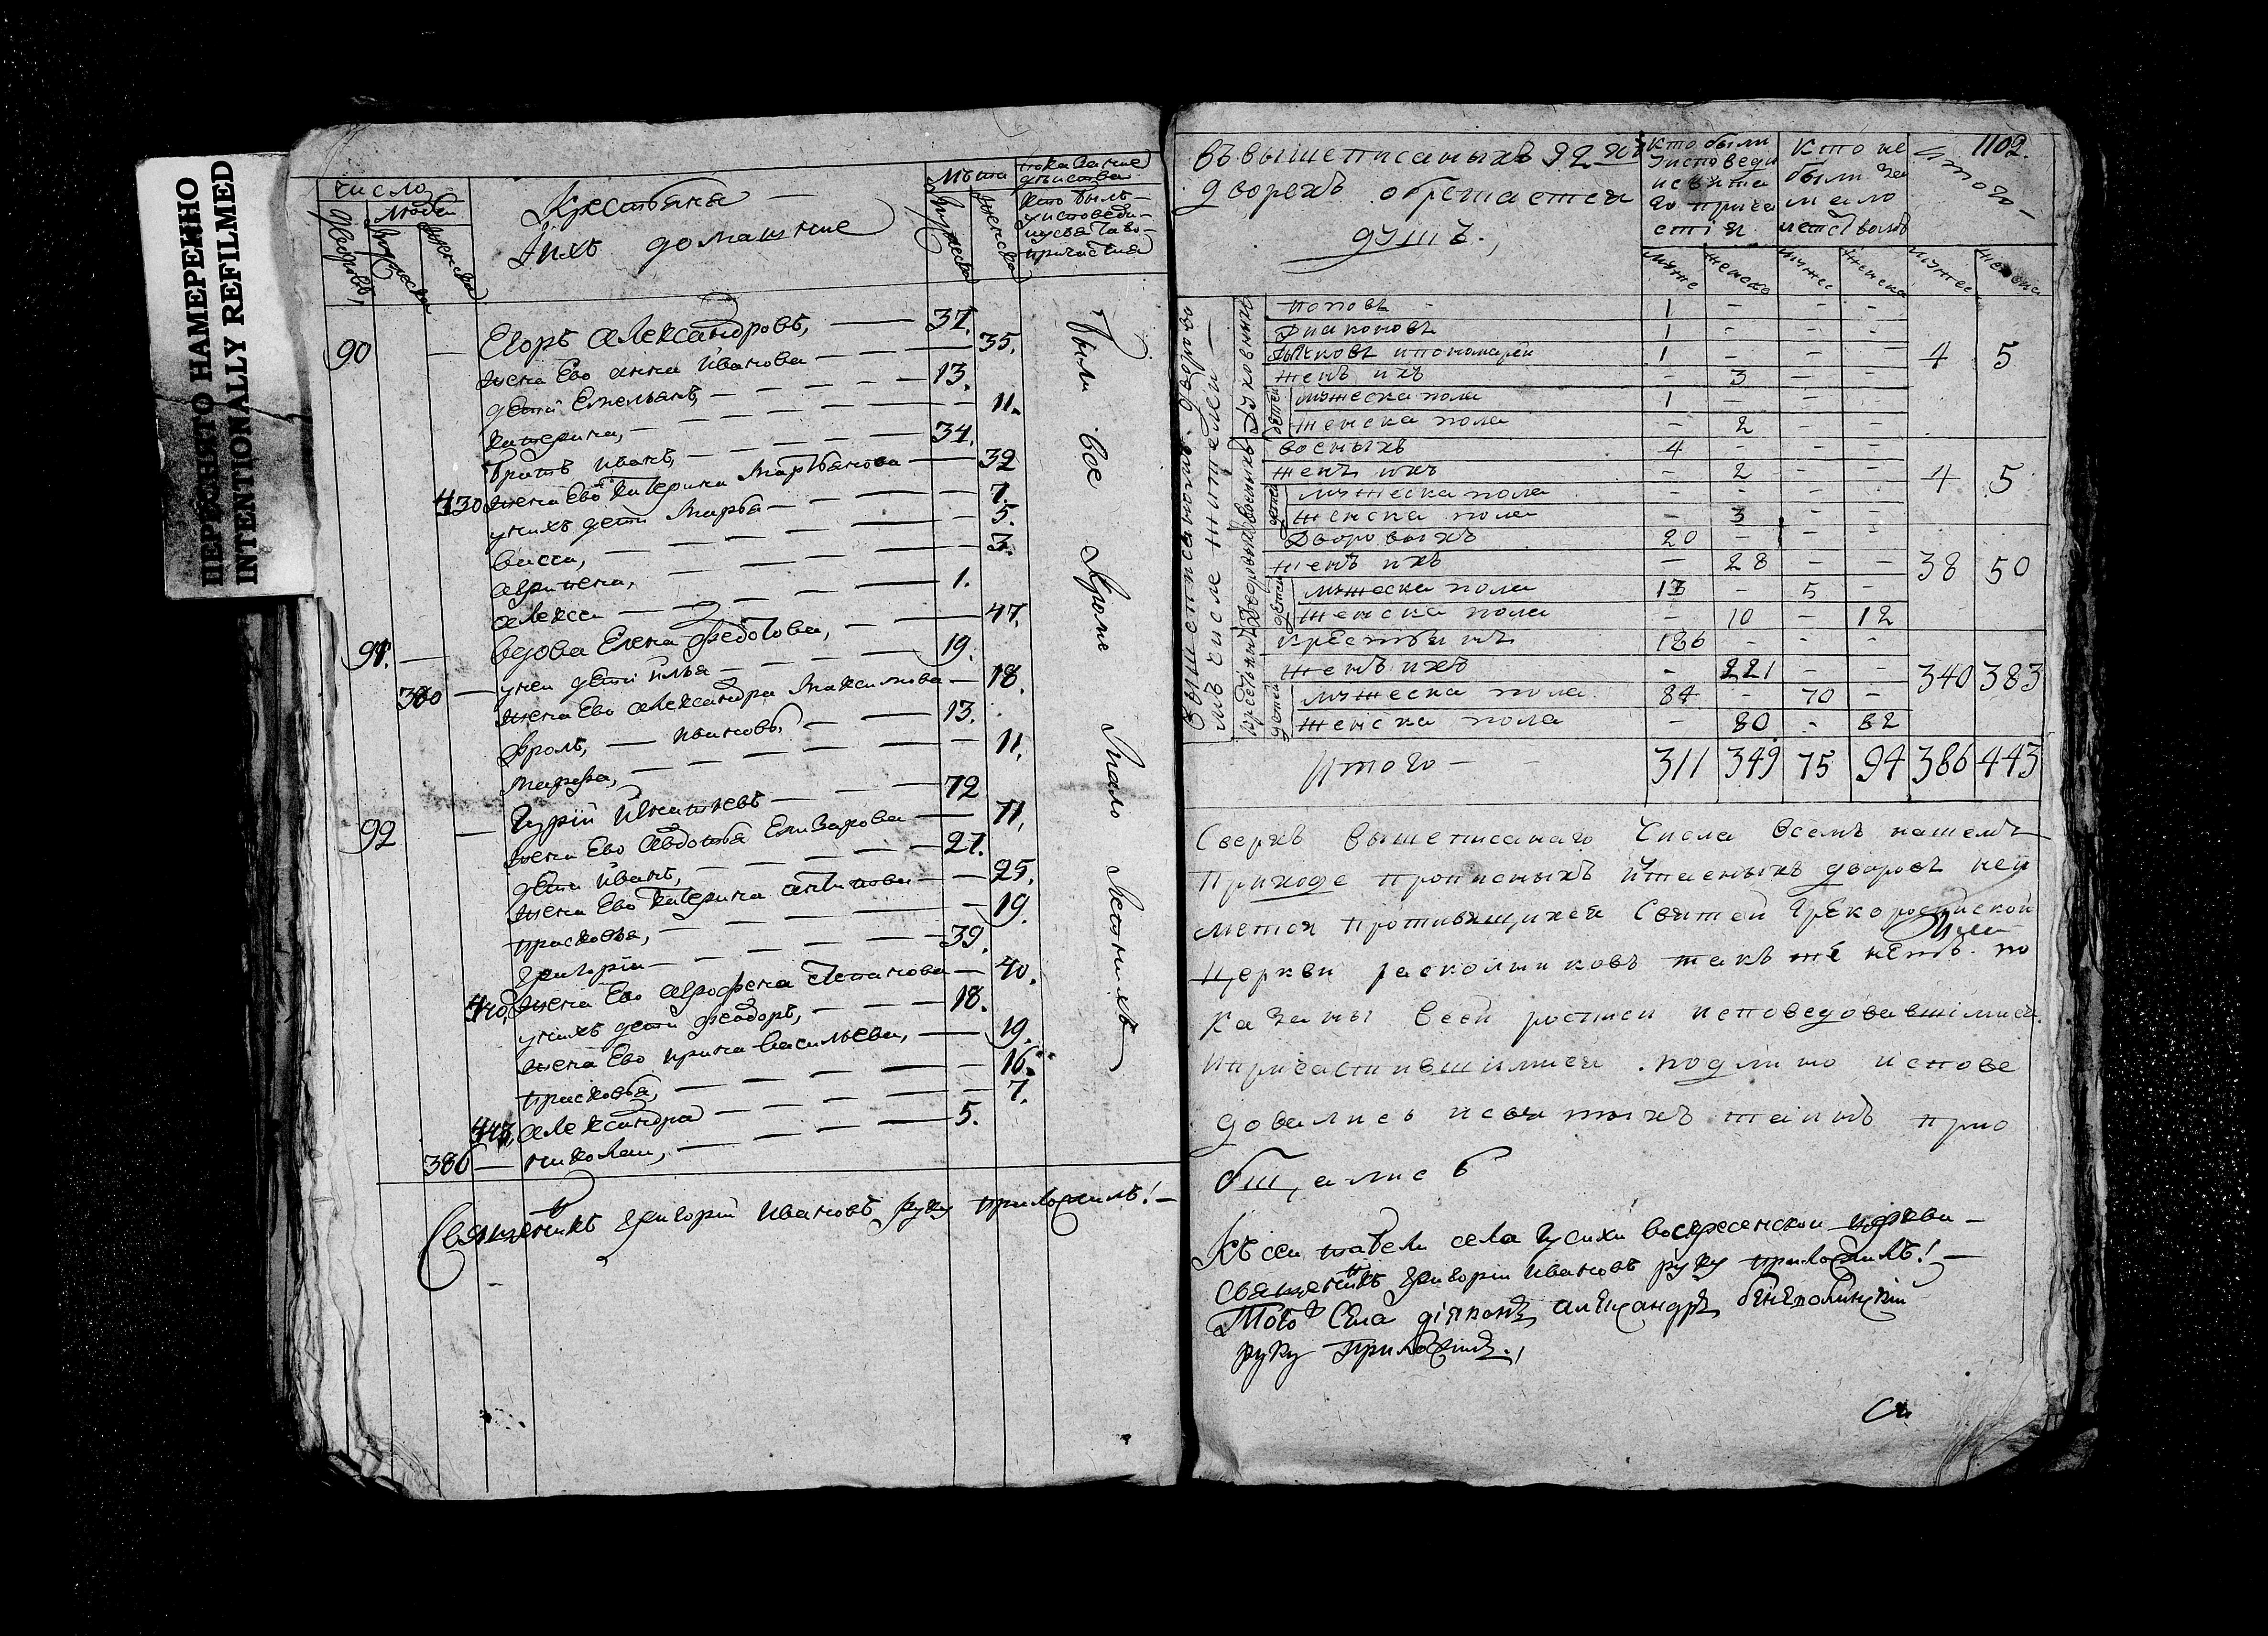 ПЕРЕСНЯТО НАМЕРЕННО
INTENTIONALLY REFILMED
число
людей
дворовъ
мужеска
женска
Крестьяна
Iихъ домашние
Лѣта
мужеска
женска
показание действа
кто былъ
уисповеди
исвятаго
причастия
90 — Егоръ Александровъ, — 37.
жена Ево анна Иванова — 35.
дети Емельянъ, — 13.
катерина, — 11.
братъ иванъ, — 34.
430 жена Ево катерина — 32
унихъ дети Марья — 7.
васса, — 5.
3.
алексеи — 1.
91. — вдова Елена федотова, — 47.
380 — унеи дети илья — 19.
жена Ево александра Максимова — 18.
фролъ, — ивановъ, — 13.
марфа, — 11.
92 — Гурiй Игнатьевъ — 72
жена Ево Авдотья Елизарова — 71,
дети иванъ, — 27.
жена Ево катерина антипова — 25.
прасковья, — 19.
григорiи — 39.
440, жена Ево агрофена степанова — 40.
унихъ дети феодоръ, — 18.
жена Ево ирина васильева, — 19.
прасковья, — 16.
александра — 7.
443,
386 — николаи, — 5.
Были все Кроме Мало Летнихъ
Священникъ григорiй Ивановъ руку приложилъ! —
1102.
въвышеписаныхъ 92-хъ
дворехъ обретается
душъ.,
кто были
уисповеди
исвята
го приче
стiя
кто не
были за
мало
летствомъ
итого —
муже женска мужес женска мужес женска
духовныхъ
поповъ 1 — — —
Диаконовъ 1 — — —
дьячковъ ипономареи 1 — — — 4 5
женъ ихъ — 3 — —
детеи
мужеска пола 1 — — —
женска пола — 2 — —
военыхъ
военыхъ 4 — — —
женъ ихъ — 2 — — 4 5
детеи
мужеска пола — — — —
женска пола — 3 — —
Дворовыхъ
Дворовыхъ 20 — — —
женъ ихъ — 28 — — 38 50
детеи
мужеска пола 13 — 5 —
женска пола — 10 — 12
крестьянъ
крестьянъ 186 — — —
женъ ихъ — 221 — — 340 383
детеи
мужеска пола 84 — 70 —
женска пола — 80 — 82
итого — 311 349 75 94 386 443
Сверхъ вышеписанаго числа всемъ нашемъ
приходе прописныхъ иутаеныхъ дворовъ неи
метея противящихся Святеи грекоросиискои
Церкви расколниковъ такъ же нетъ. по
казаны Всеи росписи исповедовавшимися
ипричастившимися .подлино испове
довались исвятыхъ таинъ прио
бщ,ались
Къ сеи табели села Гусихи воскресенскои церкви —
священникъ григорiи Ивановъ руку приложилъ! —
Тогожъ Села дiяконъ александръ
руку приложилъ.,